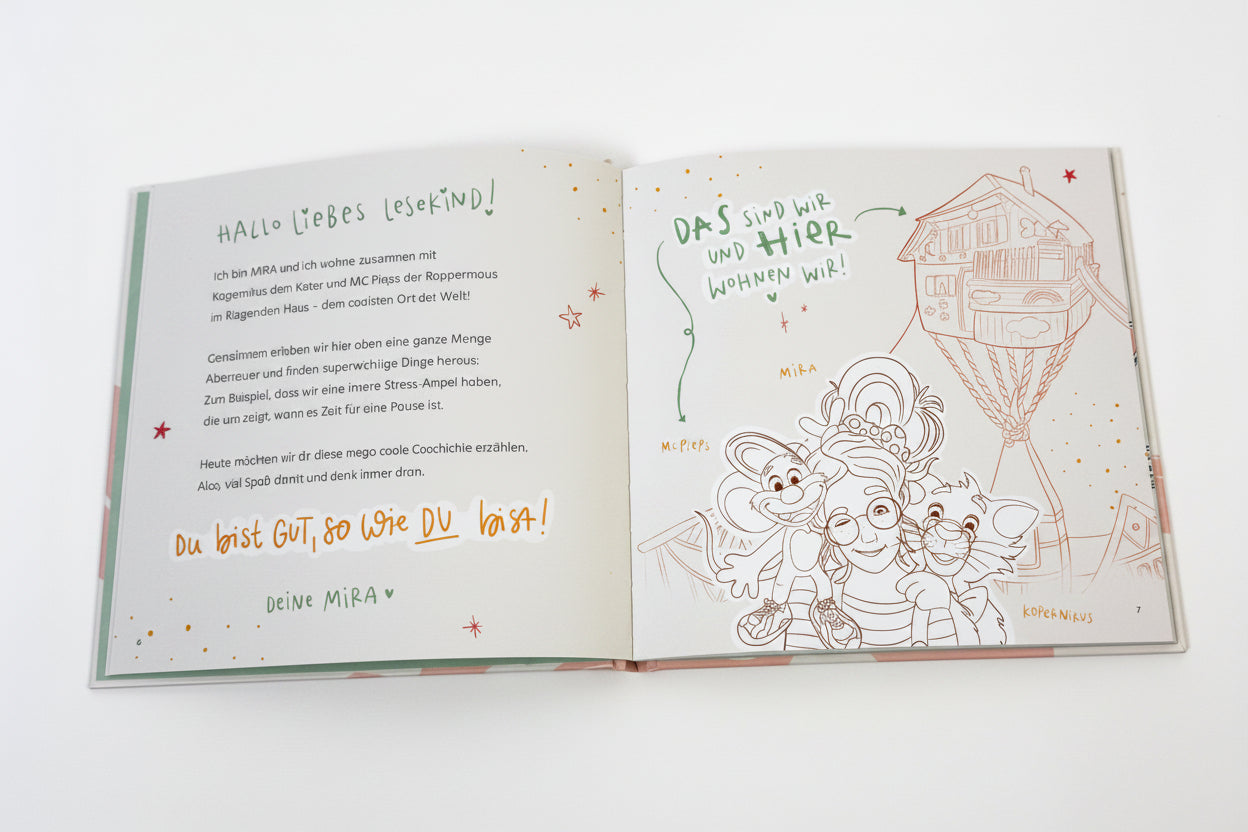 HALLO LIEBES LESEKIND!
Ich bin MIRA und ich wohne zusamnen mit
Kagemikus dem Kater und MC Piass der Roppermaus
im Riagenden Haus - dem coaisten Ort det Welt!
Gensimmem erloben wir hier oben eine ganze Menge
Aberreuer und finden superwchiige Dinge herous:
Zum Buispiel, dass wir eine imere Stress-Ampel haben,
die um zeigt, wann es Zeit für eine Pause ist.
Heute möchten wir dr diese mego coole Coochichie erzählen,
Aloo, vial Spaß damit und denk inmer dran.
Du bist GUT, so wie DU bist!
DEINE MIRA
6
DAS SIND WIR
UND HIER
WOHNEN WIR!
MIRA
MCPIEPS
KOPERNIKUS
7